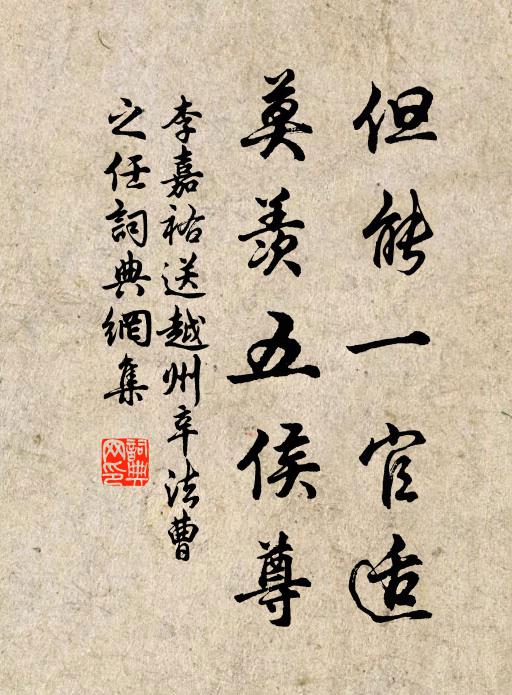 但能一官适
莫羨五侯尊
李嘉祐送越州辛法曹
之任詞典網集
詞典網印